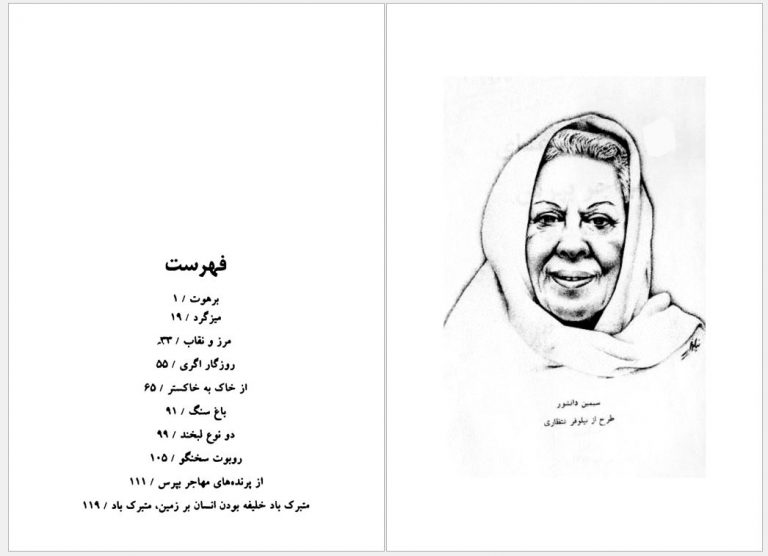 سیمین دانشور
طرح از نیلوفر
فهرست
برهوت / ۱
میزگرد / ۱۹
مرز و نقاب / ۳۳
روزگار اگری / ۵۵
از خاک به خاکستر / ۶۵
باغ سنگ / ۹۱
دو نوع لبخند / ۹۹
روبوت سخنگو / ۱۰۵
از پرنده‌های مهاجر بپرس / ۱۱۱
متبرک باد خلیفه بودن انسان بر زمین، متبرک باد / ۱۱۹